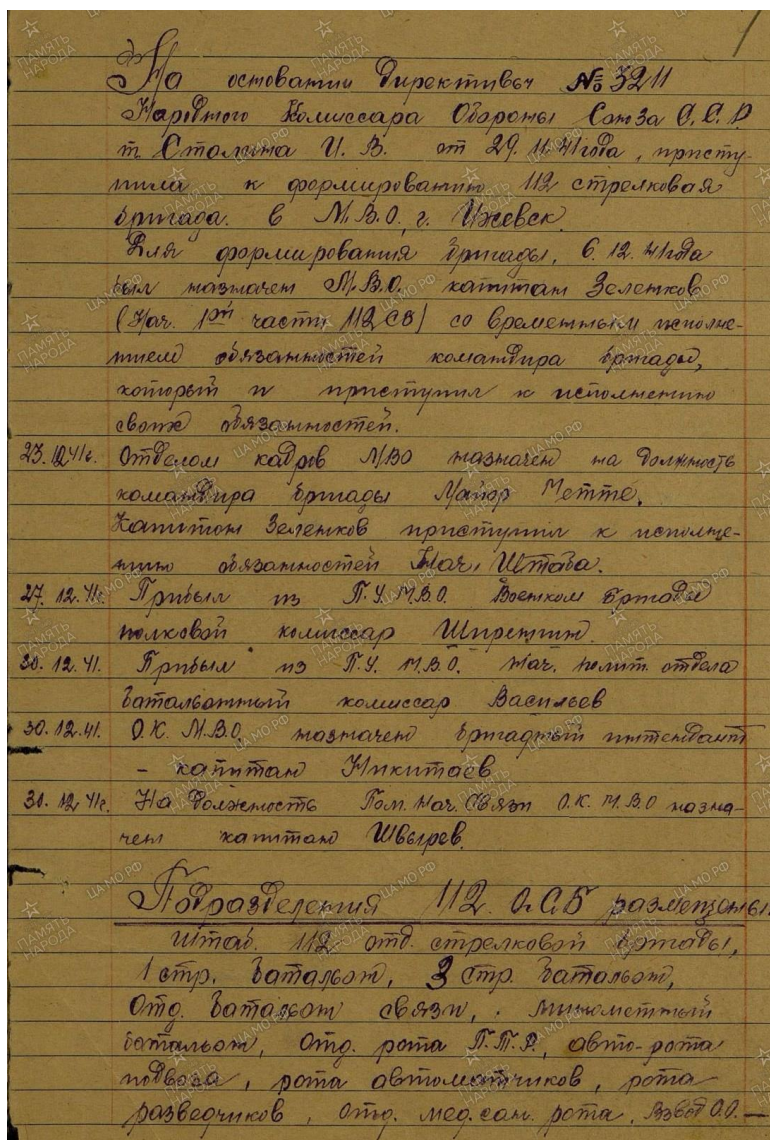 На основании Директивы № 3211
Народного Комиссара Обороны Союза С.С.Р
т. Сталина И. В. от 29. 11. 41 года, присту-
пила к формированию 112 стрелковая
бригада. в М.В.О., г. Ижевск.
Для формирования бригады, 6. 12. 41 года
был назначен М.В.О. капитан Зеленков
(Нач. 1ой части 112 СБ) со временным исполне-
нием обязанностей командира бригады,
который и приступил к исполнению
своих обязанностей.
23. 12 41г. Отделом кадров МВО назначен на должность
командира бригады Майор Метте.
Капитан Зеленков приступил к исполне-
нию обязанностей Нач. Штаба.
27. 12. 41г. Прибыл из П.У. М.В.О. Военком бригады
полковой комиссар Ширенин.
30. 12. 41. Прибыл из П.У. М.В.О. Нач. полит. отдела
батальонный комиссар Васильев
30. 12. 41. О.К. М.В.О. назначен бригадный интендант
- капитан Никитаев
31. 12 41г. На должность Пом. Нач. Связи О.К. М.В.О назна-
чен капитан Швырев.
Подразделения 112. О.С.Б размещены.
Штаб. 112 отд. стрелковой бригады,
1 стр. батальон, 3 стр. батальон,
Отд. батальон связи, минометный
батальон, Отд. рота П.Т.Р., авто-рота
подвоза, рота автоматчиков, рота
разведчиков, отд. мед. сан. рота, взвод О.О. —